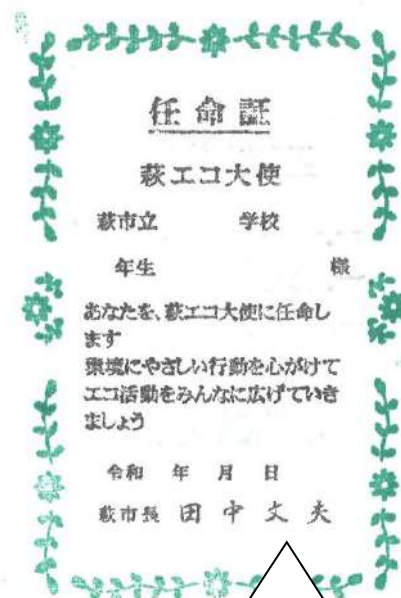 任命証
萩エコ大使
萩市立 学校
年生 様
あなたを、萩エコ大使に任命し
ます
環境にやさしい行動を心がけて
エコ活動をみんなに広げていき
ましょう
令和 年 月 日
萩市長 田中文夫